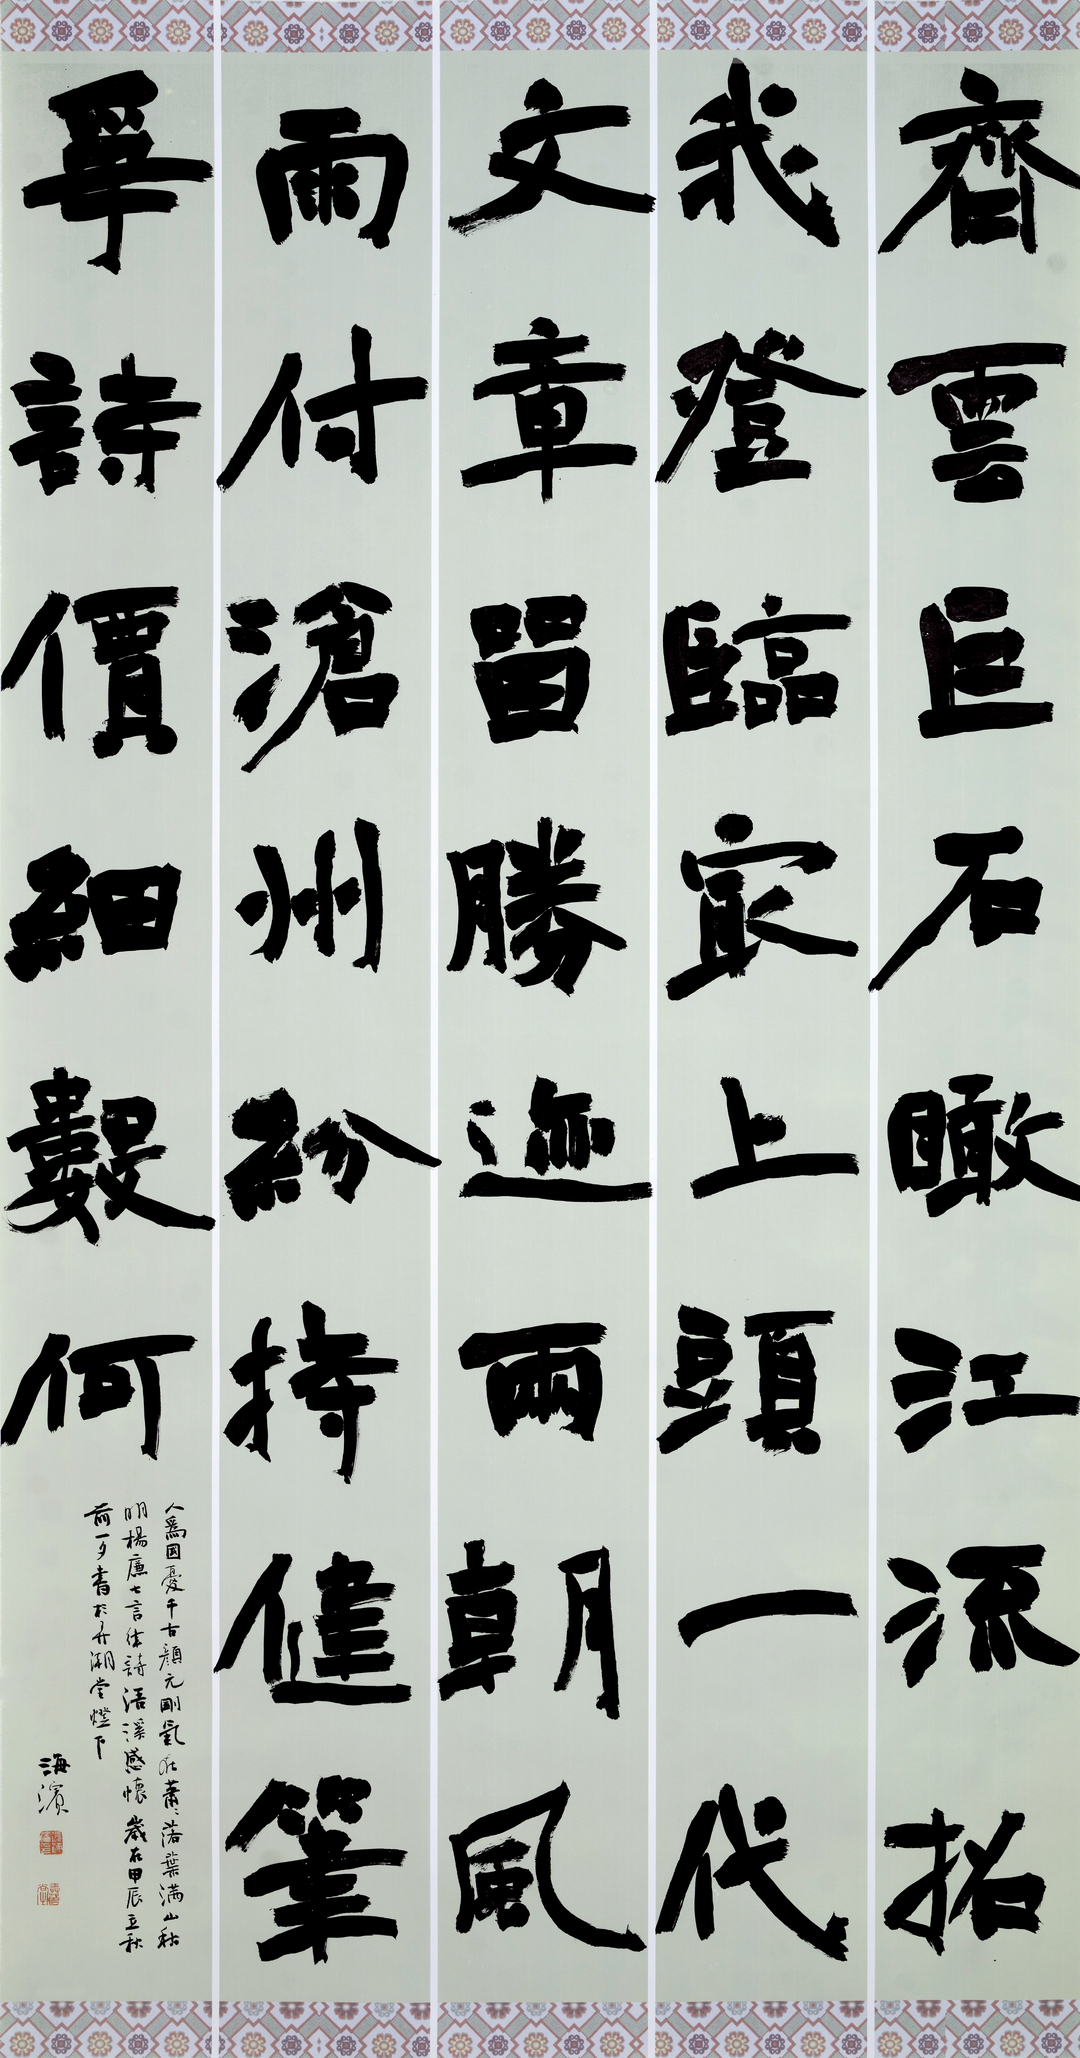 齊雲巨石瞰江流拓
我登臨㝡上頭一代
文章留勝迹兩朝風
雨付滄州紛持健筆
爭詩價細數何
人爲國憂千古顏元剛氣在蕭〻落葉滿山秋
明楊廉七言律詩浯溪感懷 歲在甲辰立秋
前一夕書於湖堂燈下
海濱